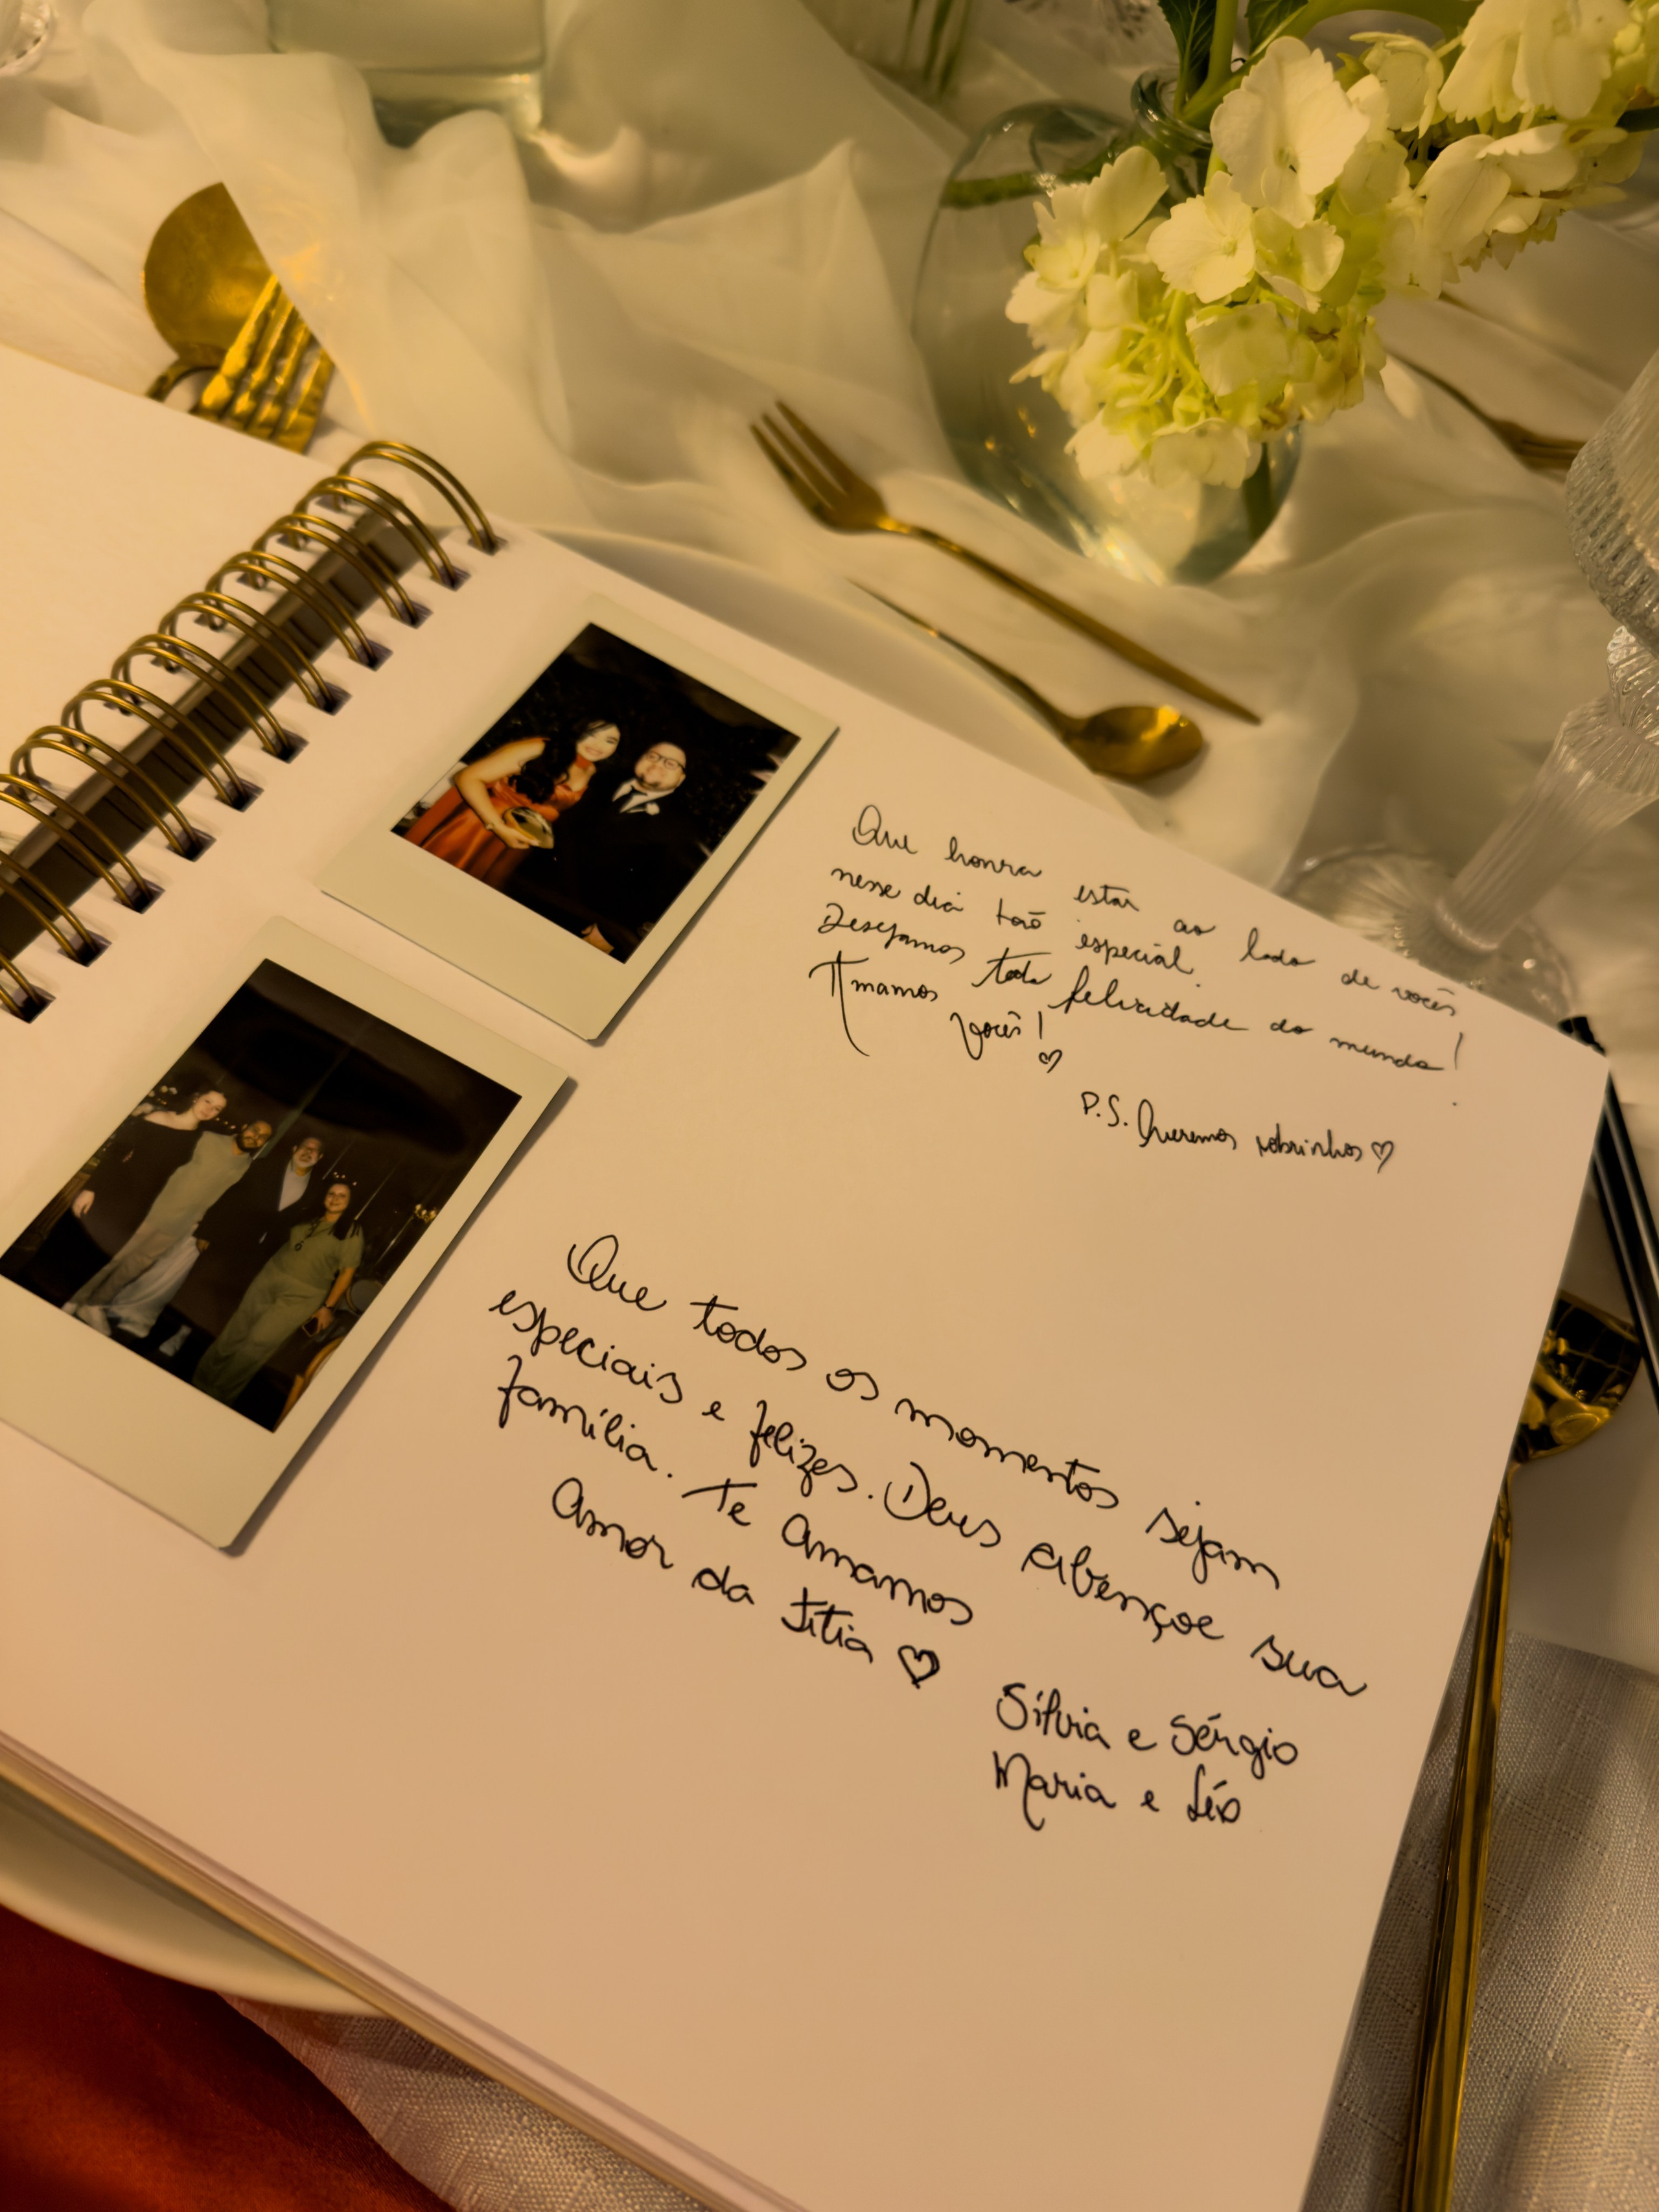 Que honra estar ao lado de vocês
nesse dia tão especial.
Desejamos toda felicidade do mundo!
Amamos vocês! ♡
P.S. Queremos sobrinhos ♡
Que todos os momentos sejam
especiais e felizes. Deus abençoe sua
família. Te amamos
Amor da titia ♡
Sílvia e Sérgio
Maria e Léo